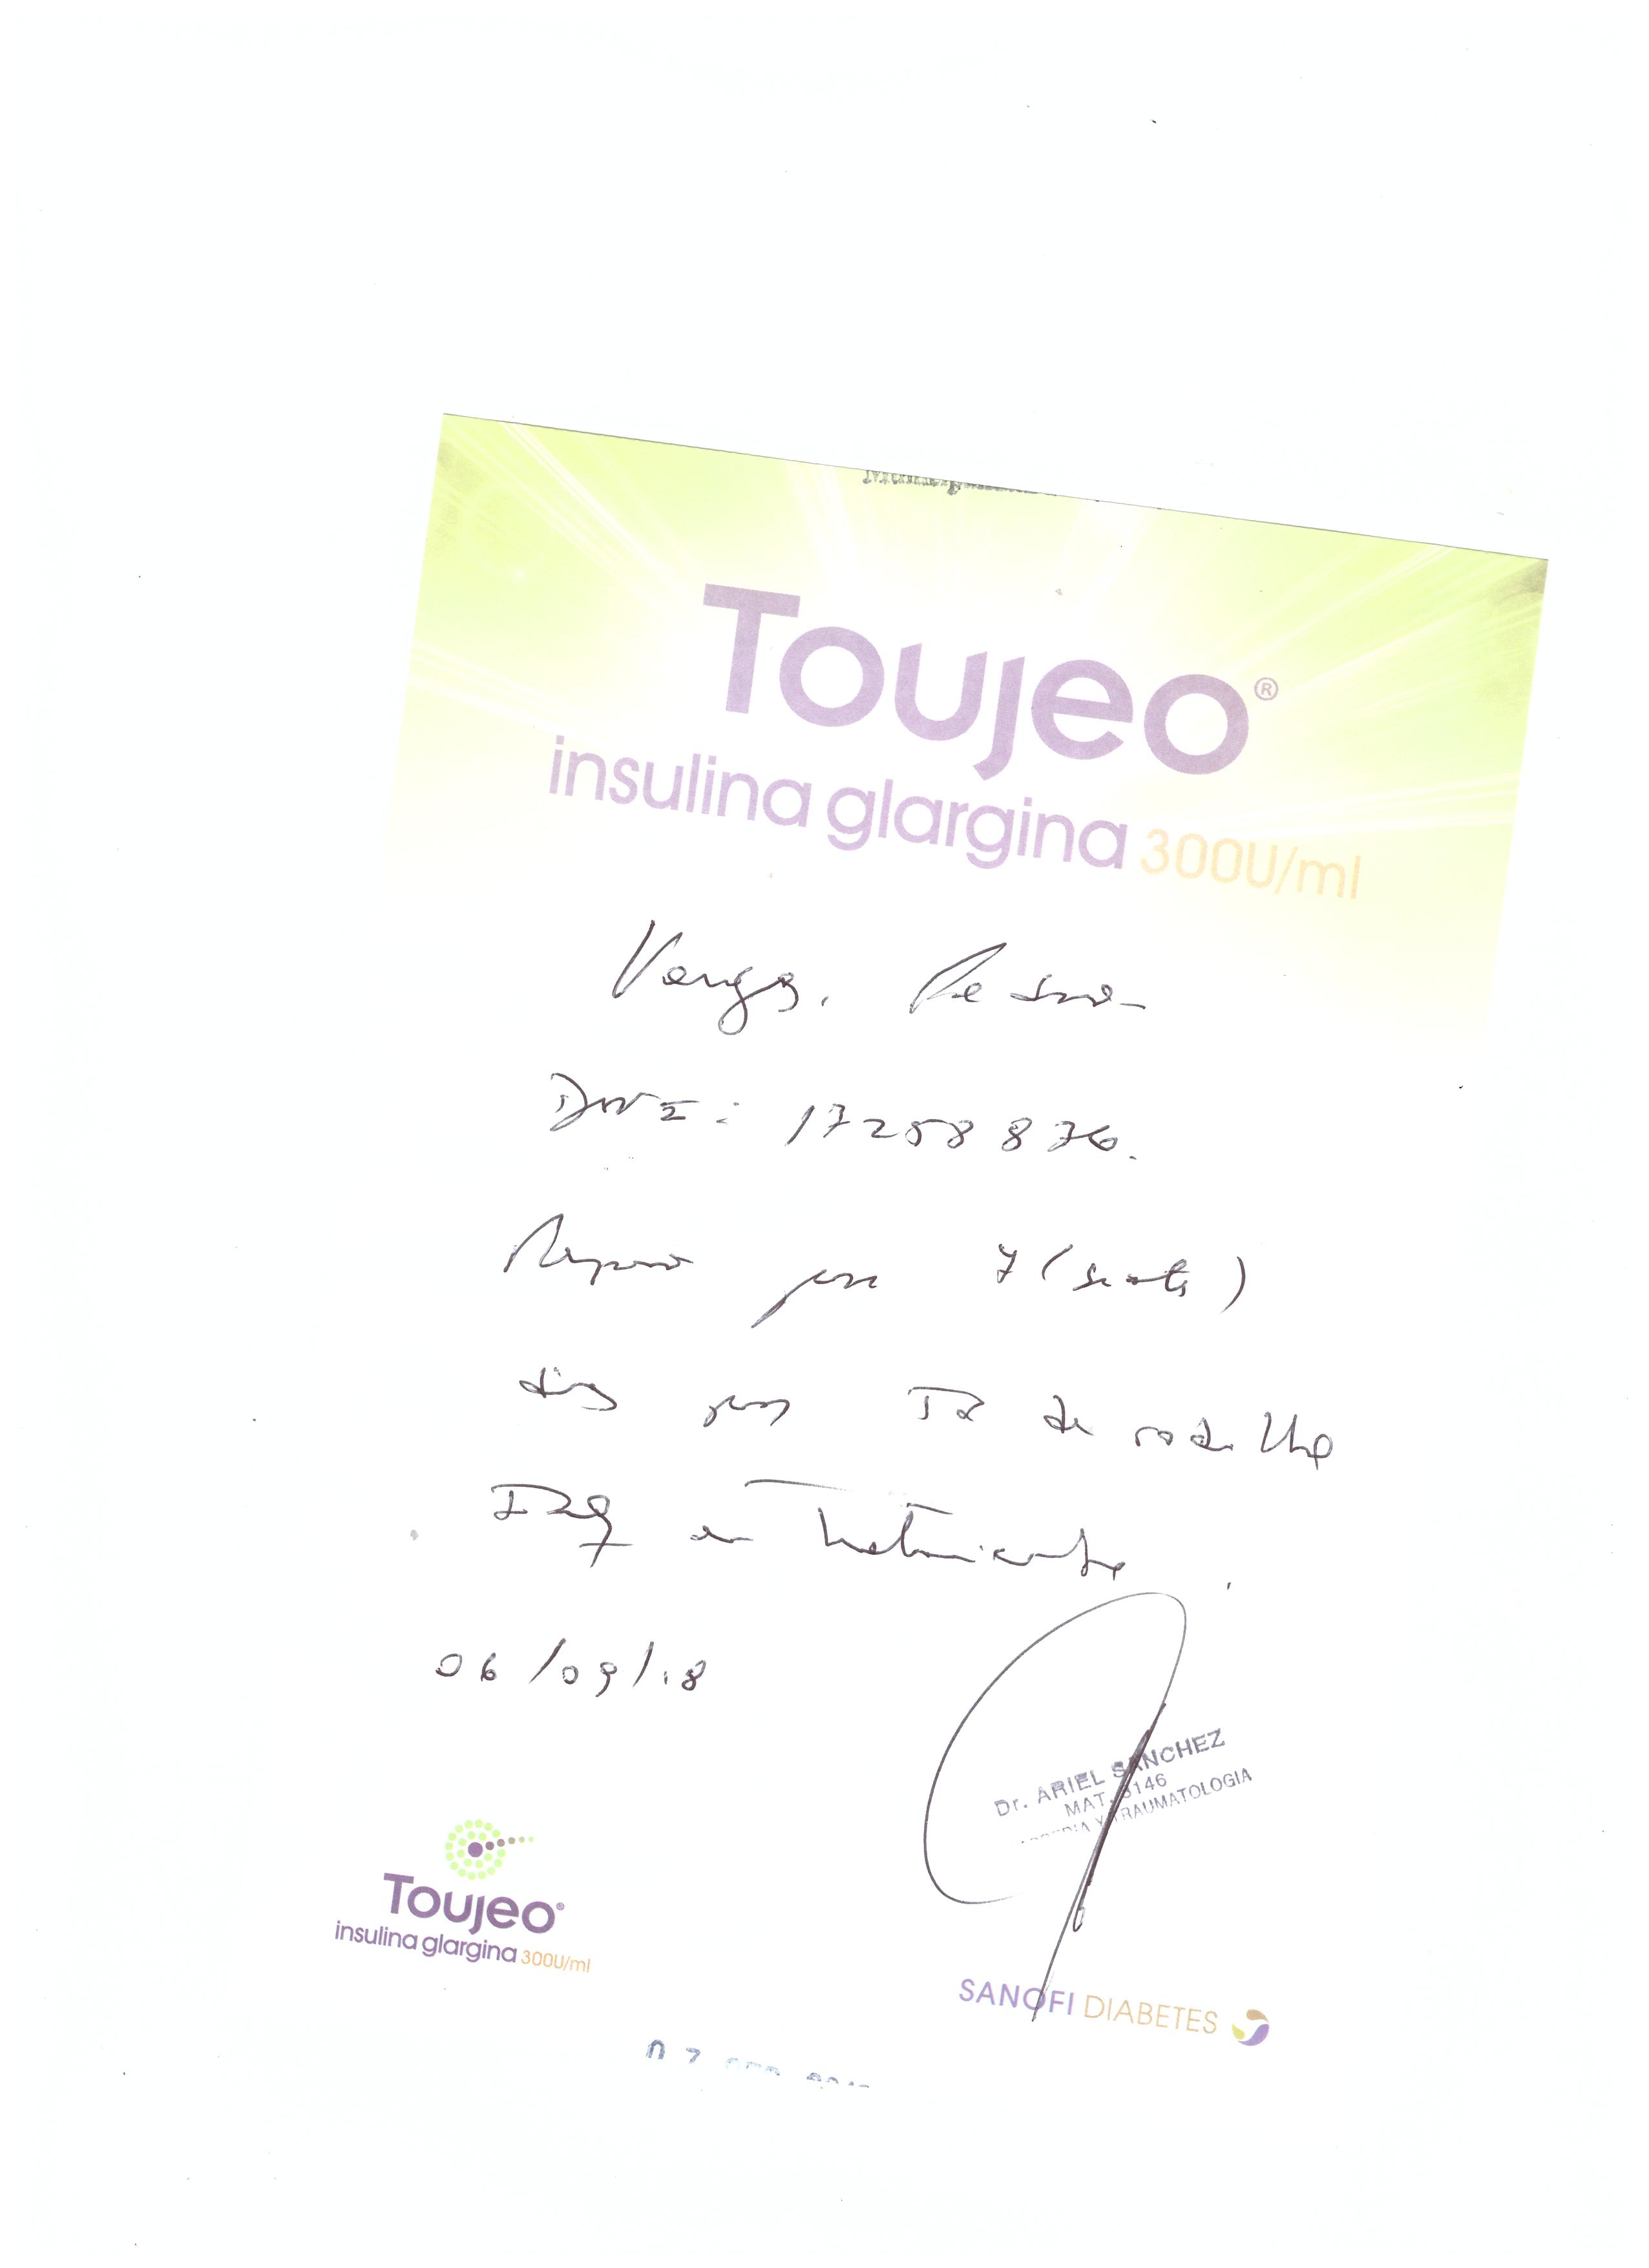 Toujeo®
insulina glargina 300U/ml
Vargas,
DNI: 17258876.
Reposo por 7 (siete)
dias por de rodilla
Izq en tratamiento.
06/09/18
Dr. ARIEL SANCHEZ
MAT. 146
Y TRAUMATOLOGIA
Toujeo®
insulina glargina 300U/ml
SANOFI DIABETES
07